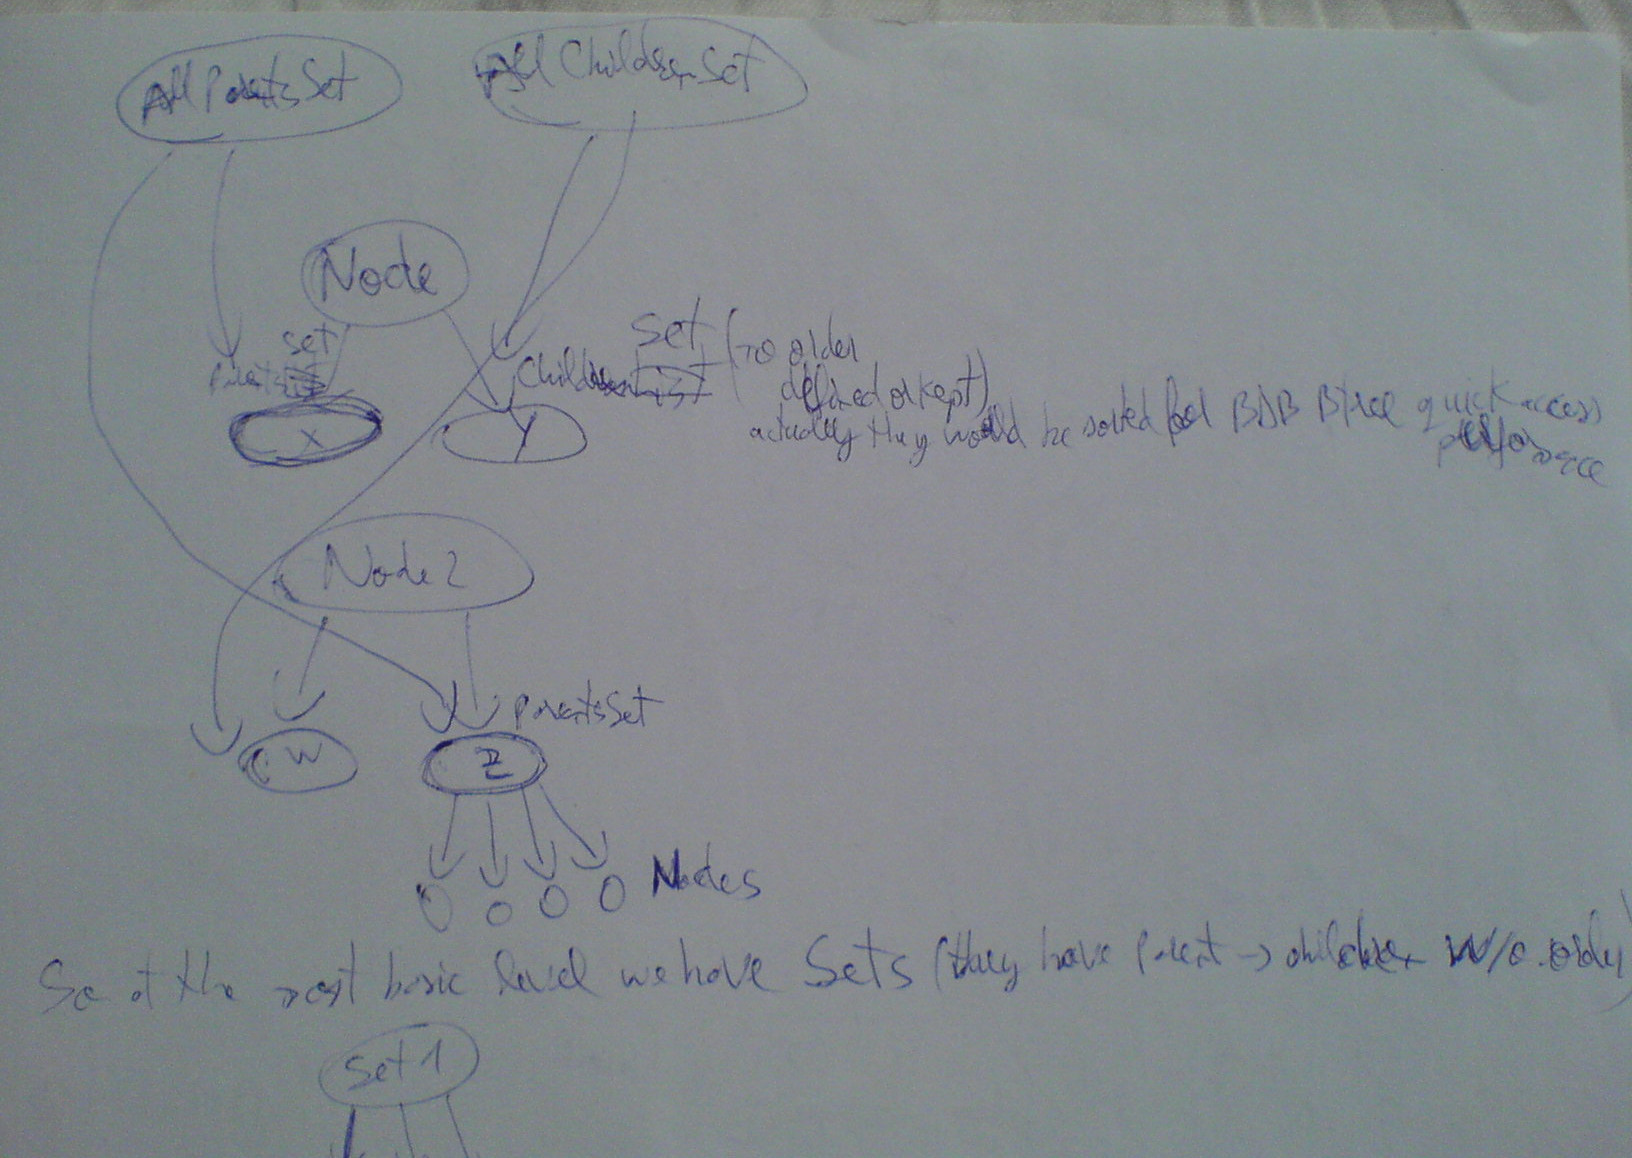 All Parents Set
All Children Set
Node
set
Parents
X
Set (no order
Children
defined or kept)
actually they would be sorted for BDB BTree quick access
performance
Y
Node 2
ParentsSet
W
Z
Nodes
So at the most basic level we have Sets (they have parent -> children w/o order)
Set 1